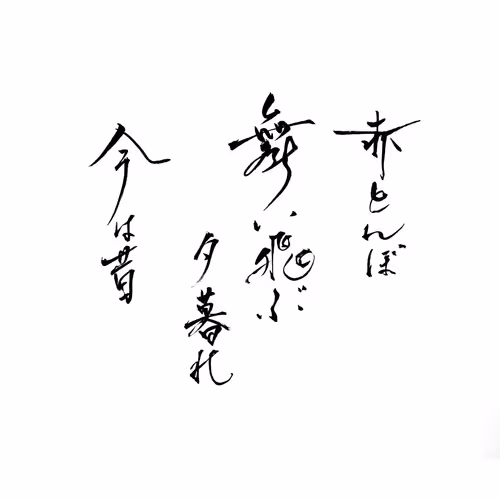 赤とんぼ
舞い飛ぶ
夕暮れ
今は昔